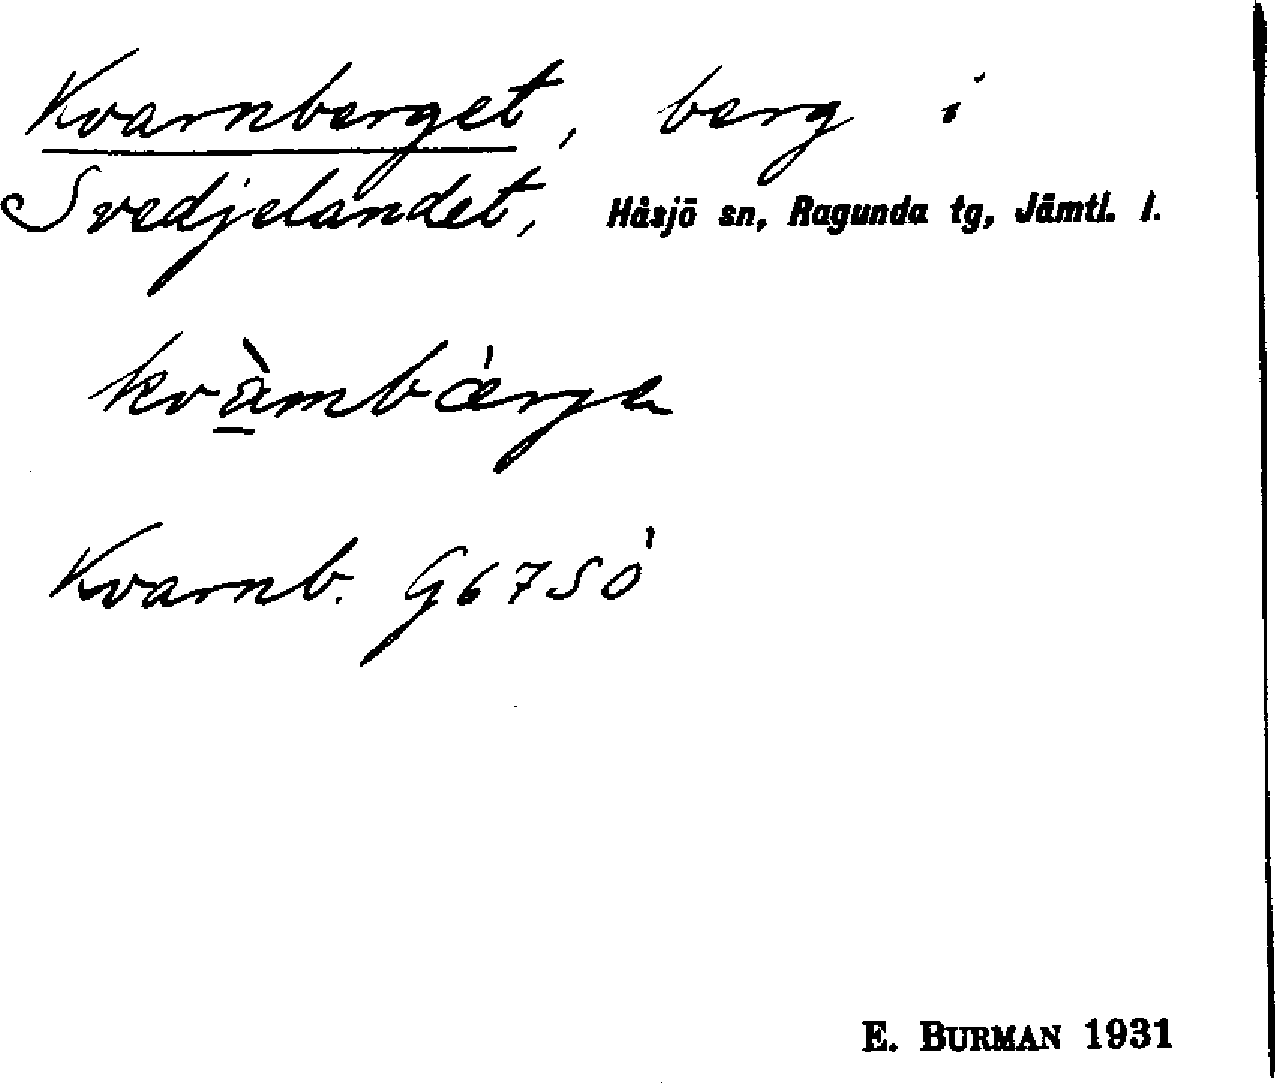 Kvarnberget, berg i
Svedjelandet, Håsjö sn, Ragunda tg, Jämtl. l.
kvàmbærja
Kvarnb. G67SÖ
E. BURMAN 1931